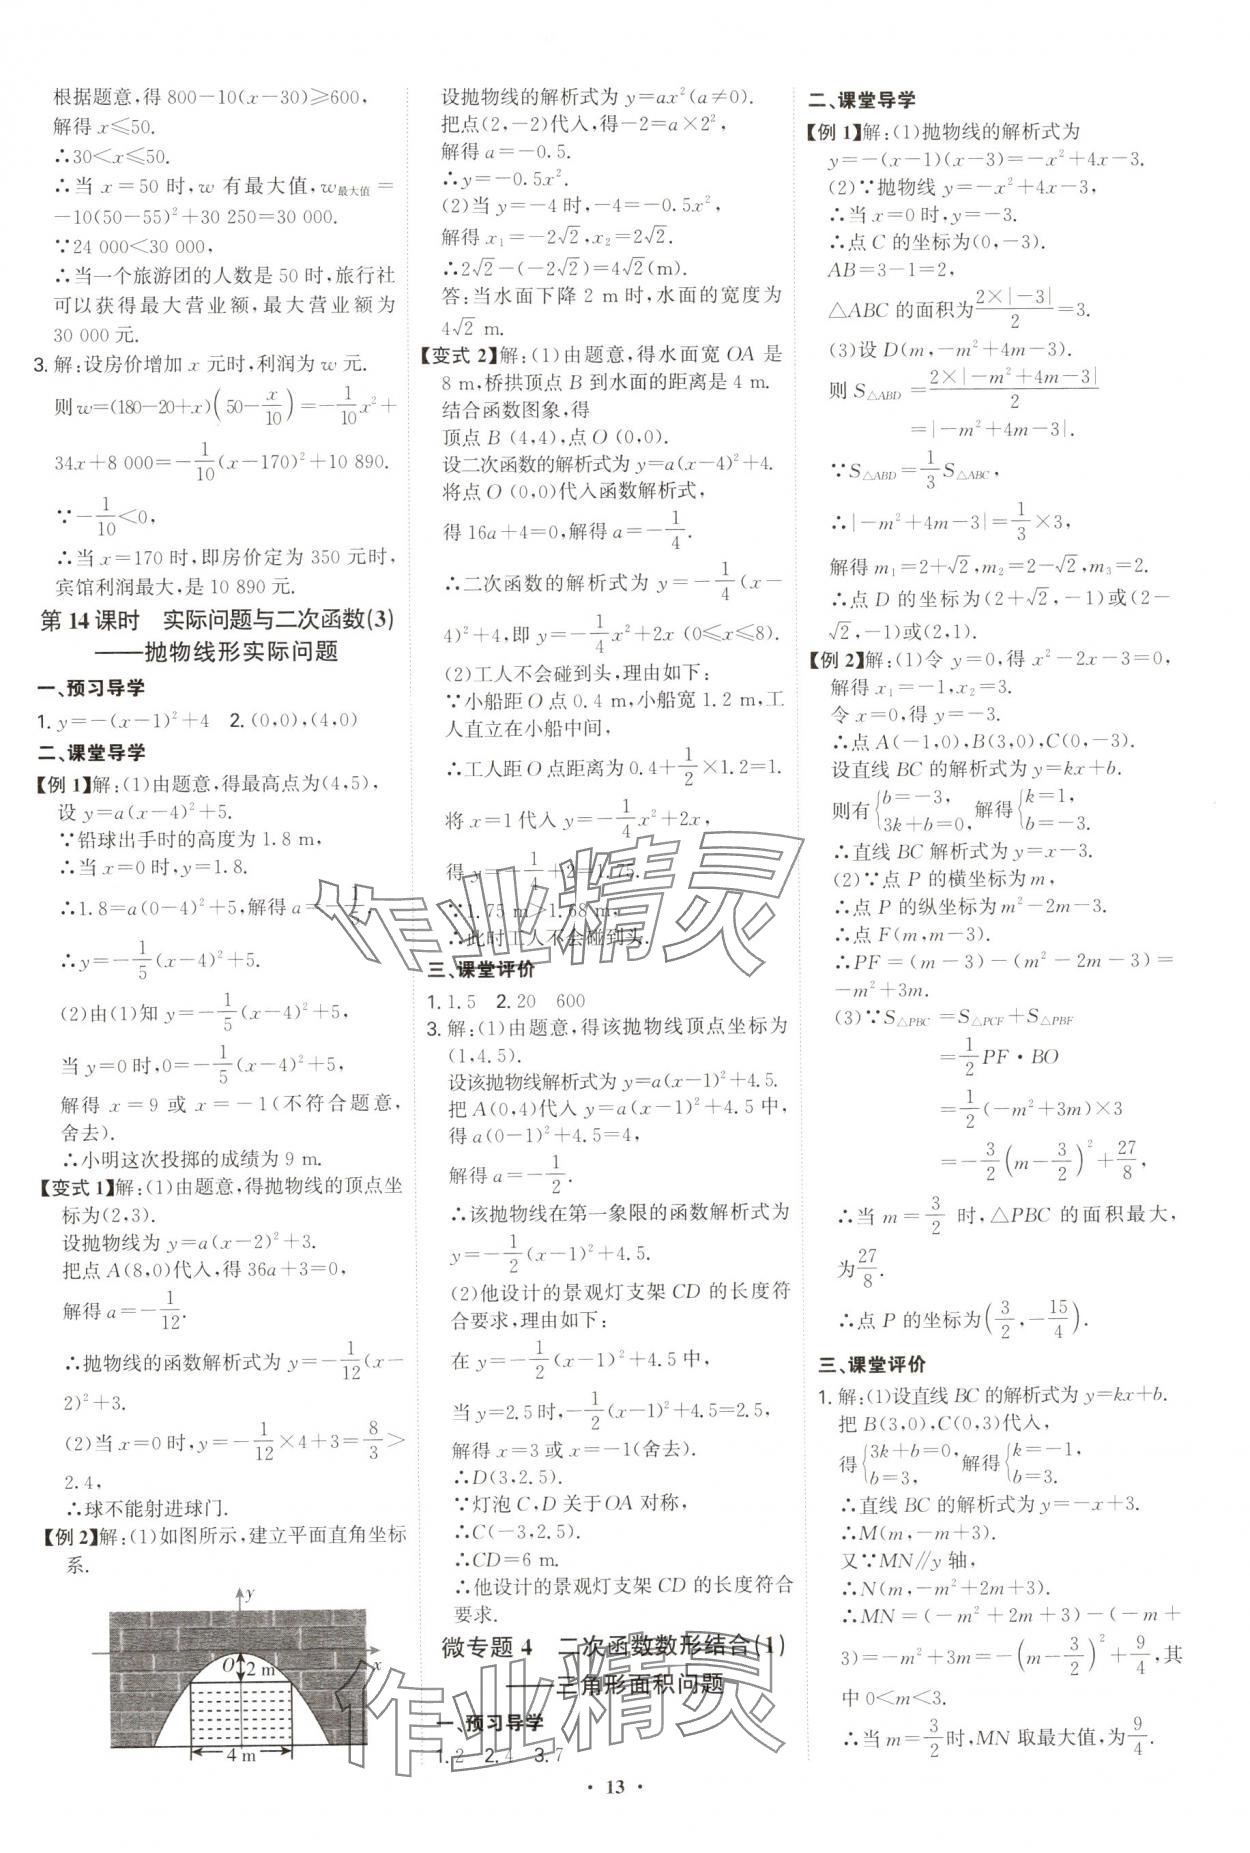 根据题意,得 800-10(x-30)≥600,
解得 x≤50.
∴30<x≤50.
∴当 x=50 时,w 有最大值,w最大值=
-10(50-55)²+30 250=30 000.
∵24 000<30 000,
∴当一个旅游团的人数是 50 时,旅行社
可以获得最大营业额,最大营业额为
30 000 元.
3. 解:设房价增加 x 元时,利润为 w 元.
则 w=(180-20+x)(50-x/10)=-1/10x²+
34x+8 000=-1/10(x-170)²+10 890.
∵-1/10<0,
∴当 x=170 时,即房价定为 350 元时,
宾馆利润最大,是 10 890 元.
第 14 课时 实际问题与二次函数(3)
——抛物线形实际问题
一、预习导学
1. y=-(x-1)²+4 2. (0,0),(4,0)
二、课堂导学
【例 1】解:(1)由题意,得最高点为(4,5),
设 y=a(x-4)²+5.
∵铅球出手时的高度为 1.8 m,
∴当 x=0 时,y=1.8.
∴1.8=a(0-4)²+5,解得 a=-1/5.
∴y=-1/5(x-4)²+5.
(2)由(1)知 y=-1/5(x-4)²+5.
当 y=0 时,0=-1/5(x-4)²+5,
解得 x=9 或 x=-1(不符合题意,
舍去).
∴小明这次投掷的成绩为 9 m.
【变式 1】解:(1)由题意,得抛物线的顶点坐
标为(2,3).
设抛物线为 y=a(x-2)²+3.
把点 A(8,0)代入,得 36a+3=0,
解得 a=-1/12.
∴抛物线的函数解析式为 y=-1/12(x-
2)²+3.
(2)当 x=0 时,y=-1/12×4+3=8/3>
2.4,
∴球不能射进球门.
【例 2】解:(1)如图所示,建立平面直角坐标
系.
y
O 2 m x
4 m
设抛物线的解析式为 y=ax²(a≠0).
把点(2,-2)代入,得-2=a×2²,
解得 a=-0.5.
∴y=-0.5x².
(2)当 y=-4 时,-4=-0.5x²,
解得 x₁=-2√2,x₂=2√2.
∴2√2-(-2√2)=4√2(m).
答:当水面下降 2 m 时,水面的宽度为
4√2 m.
【变式 2】解:(1)由题意,得水面宽 OA 是
8 m,桥拱顶点 B 到水面的距离是 4 m.
结合函数图象,得
顶点 B (4,4),点 O (0,0).
设二次函数的解析式为 y=a(x-4)²+4.
将点 O (0,0)代入函数解析式,
得 16a+4=0,解得 a=-1/4.
∴二次函数的解析式为 y=-1/4(x-
4)²+4,即 y=-1/4x²+2x (0≤x≤8).
(2)工人不会碰到头,理由如下:
∵小船距 O 点 0.4 m,小船宽 1.2 m,工
人直立在小船中间,
∴工人距 O 点距离为 0.4+1/2×1.2=1.
将 x=1 代入 y=-1/4x²+2x,
得 y=-1/4+2=1.75.
∵1.75 m>1.68 m,
∴此时工人不会碰到头.
三、课堂评价
1. 1.5 2. 20 600
3. 解:(1)由题意,得该抛物线顶点坐标为
(1,4.5).
设该抛物线解析式为 y=a(x-1)²+4.5.
把 A(0,4)代入 y=a(x-1)²+4.5 中,
得 a(0-1)²+4.5=4,
解得 a=-1/2.
∴该抛物线在第一象限的函数解析式为
y=-1/2(x-1)²+4.5.
(2)他设计的景观灯支架 CD 的长度符
合要求,理由如下:
在 y=-1/2(x-1)²+4.5 中,
当 y=2.5 时,-1/2(x-1)²+4.5=2.5,
解得 x=3 或 x=-1(舍去).
∴D(3,2.5).
∵灯泡 C,D 关于 OA 对称,
∴C(-3,2.5).
∴CD=6 m.
∴他设计的景观灯支架 CD 的长度符合
要求.
微专题 4 二次函数数形结合(1)
——三角形面积问题
一、预习导学
1. 2 2. 4 3. 7
二、课堂导学
【例 1】解:(1)抛物线的解析式为
y=-(x-1)(x-3)=-x²+4x-3.
(2)∵抛物线 y=-x²+4x-3,
∴当 x=0 时,y=-3.
∴点 C 的坐标为(0,-3).
AB=3-1=2,
△ABC 的面积为2×|-3|/2=3.
(3)设 D(m,-m²+4m-3),
则 S△ABD=2×|-m²+4m-3|/2
=|-m²+4m-3|.
∵S△ABD=1/3S△ABC,
∴|-m²+4m-3|=1/3×3,
解得 m₁=2+√2,m₂=2-√2,m₃=2.
∴点 D 的坐标为(2+√2,-1)或(2-
√2,-1)或(2,1).
【例 2】解:(1)令 y=0,得 x²-2x-3=0,
解得 x₁=-1,x₂=3.
令 x=0,得 y=-3.
∴点 A(-1,0),B(3,0),C(0,-3).
设直线 BC 的解析式为 y=kx+b.
则有{b=-3, 3k+b=0, 解得{k=1, b=-3.
∴直线 BC 解析式为 y=x-3.
(2)∵点 P 的横坐标为 m,
∴点 P 的纵坐标为 m²-2m-3.
∴点 F(m,m-3).
∴PF=(m-3)-(m²-2m-3)=
-m²+3m.
(3)∵S△PBC=S△PCF+S△PBF
=1/2PF·BO
=1/2(-m²+3m)×3
=-3/2(m-3/2)²+27/8,
∴当 m=3/2 时,△PBC 的面积最大,
为27/8.
∴点 P 的坐标为(3/2,-15/4).
三、课堂评价
1. 解:(1)设直线 BC 的解析式为 y=kx+b.
把 B(3,0),C(0,3)代入,
得{3k+b=0, b=3, 解得{k=-1, b=3.
∴直线 BC 的解析式为 y=-x+3.
∴M(m,-m+3).
又∵MN∥y 轴,
∴N(m,-m²+2m+3).
∴MN=(-m²+2m+3)-(-m+
3)=-m²+3m=-(m-3/2)²+9/4,其
中 0<m<3.
∴当 m=3/2时,MN 取最大值,为9/4.
· 13 ·
作业精灵
作业精灵